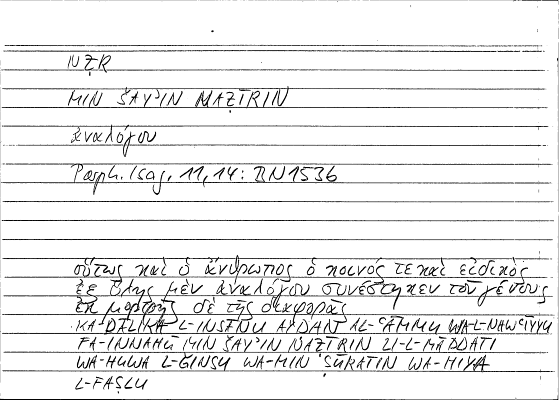 NẒR
MIN ŠAYʾIN NAẒĪRIN
ἀναλόγου
Porph. Isag. 11, 14: BN 1536
οὕτως καὶ ὁ ἄνθρωπος ὁ κοινός τε καὶ εἰδικὸς
ἐξ ὕλης μὲν ἀναλόγου συνέστηκεν τοῦ γένους
ἐκ μορφῆς δὲ τῆς διαφορᾶς
KA-ḎĀLIKA L-INSĀNU AYḌAN AL-ʿĀMMU WA-L-NAWʿĪYU
FA-INNAHŪ MIN ŠAYʾIN NAẒĪRIN LI-L-MĀDDATI
WA-HUWA L-ǦINSU WA-MIN ṢŪRATIN WA-HIYA
L-FAṢLU